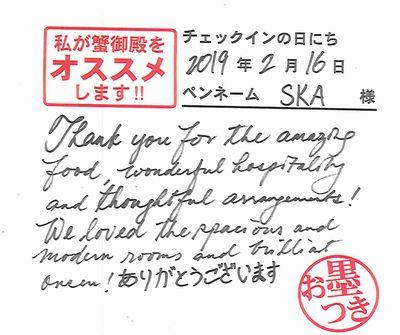 私が蟹御殿を
オススメ
します!!
チェックインの日にち
2019年2月16日
ペンネーム SKA 様
Thank you for the amazing
food, wonderful hospitality
and thoughtful arrangements!
We loved the spacious and
modern rooms and brilliat
onsen! ありがとうございます
お墨つき